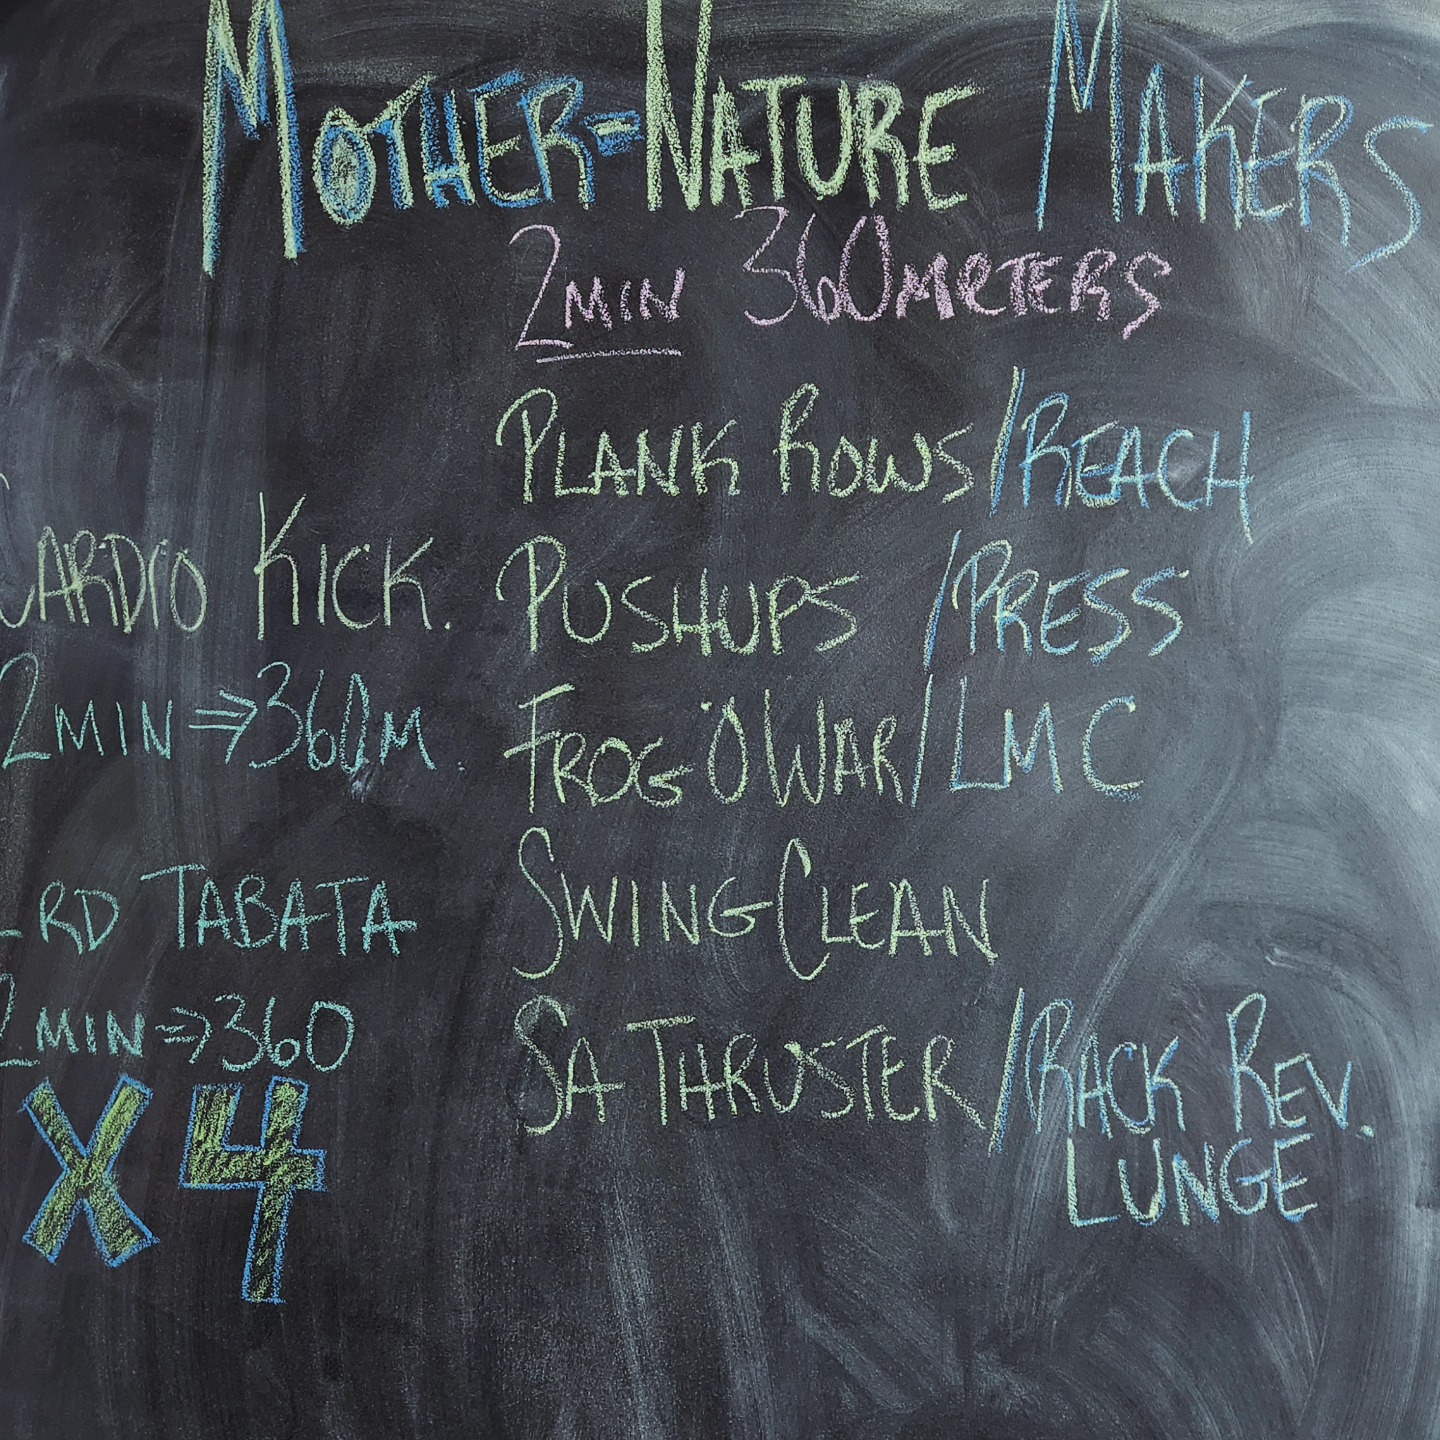 MOTHER=NATURE MAKERS
2MIN 360METERS
PLANK ROWS/REACH
PUSHUPS /PRESS
FROG O WAR/LMC
SWING CLEAN
SA THRUSTER/RACK REV.
LUNGE
CARDIO KICK.
2MIN⇒360M.
RD TABATA
2MIN⇒360
X4